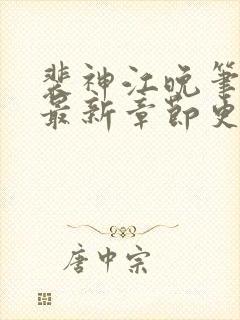 裴神江晚笔
最新章节史
唐中宗